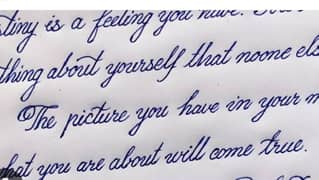 tiny is a feeling you have.
thing about yourself that noone els
The picture you have in your m
hat you are about will come true.